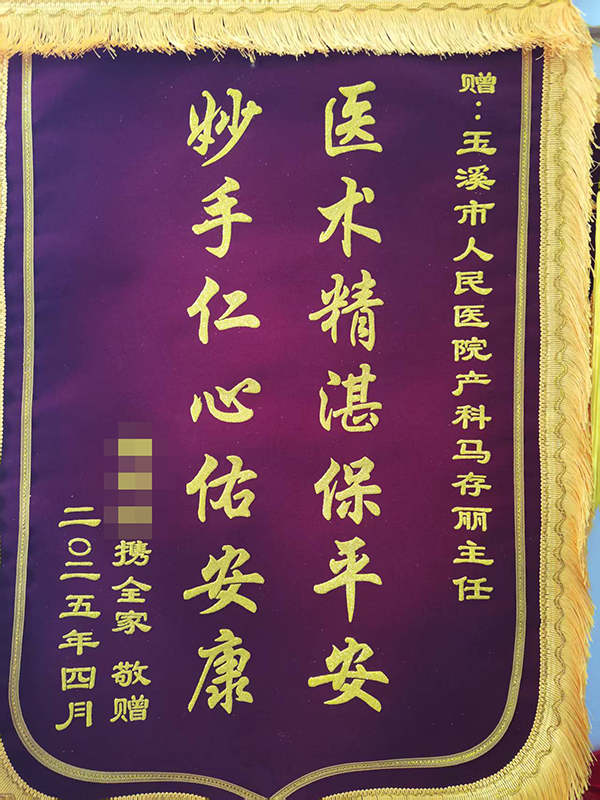 赠：玉溪市人民医院产科马存丽主任
医术精湛保平安
妙手仁心佑安康
携全家 敬赠
二〇二五年四月